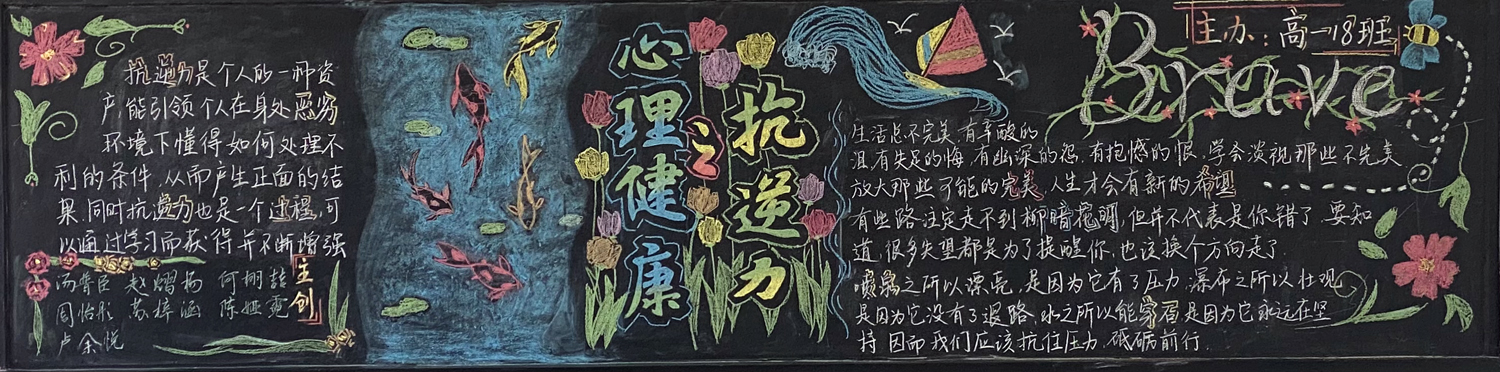 抗逆力是个人的一种资
产,能引领个人在身处恶劣
环境下懂得如何处理不
利的条件,从而产生正面的结
果.同时抗逆力也是一个过程,可
以通过学习而获得并不断增强
主创
汤 臣 赵熠扬 何栩喆
周怡彤 苏梓涵 陈娅霓
卢余悦
心理健康
之
抗逆力
主办:高一18班
Brave
生活总不完美,有辛酸的
泪,有失足的悔,有幽深的怨,有抱憾的恨,学会淡视那些不完美
放大那些可能的完美,人生才会有新的希望
有些路注定走不到柳暗花明,但并不代表是你错了 要知
道,很多失望都是为了提醒你,也该换个方向走了.
喷泉之所以漂亮,是因为它有了压力.瀑布之所以壮观
是因为它没有了退路.水之所以能穿石是因为它永远在坚
持.因而我们应该抗住压力,砥砺前行.